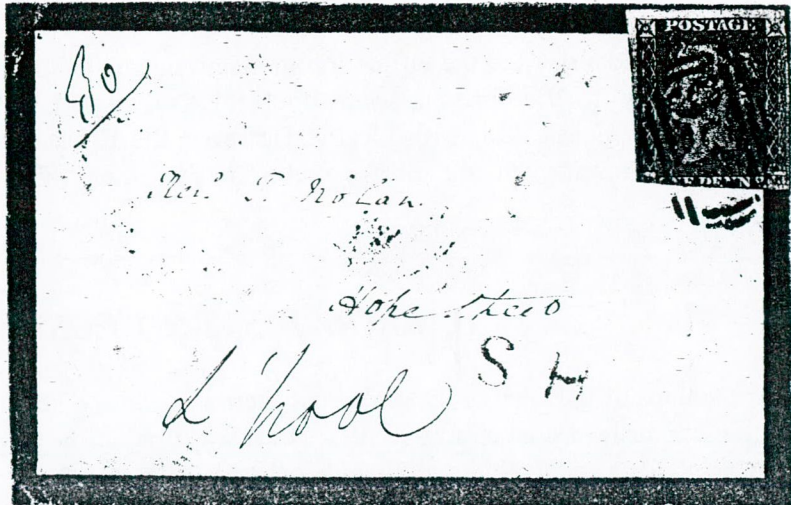 POSTAGE
ONE PENNY
Rev. T. Nolan
Hope Street
L'pool
S H